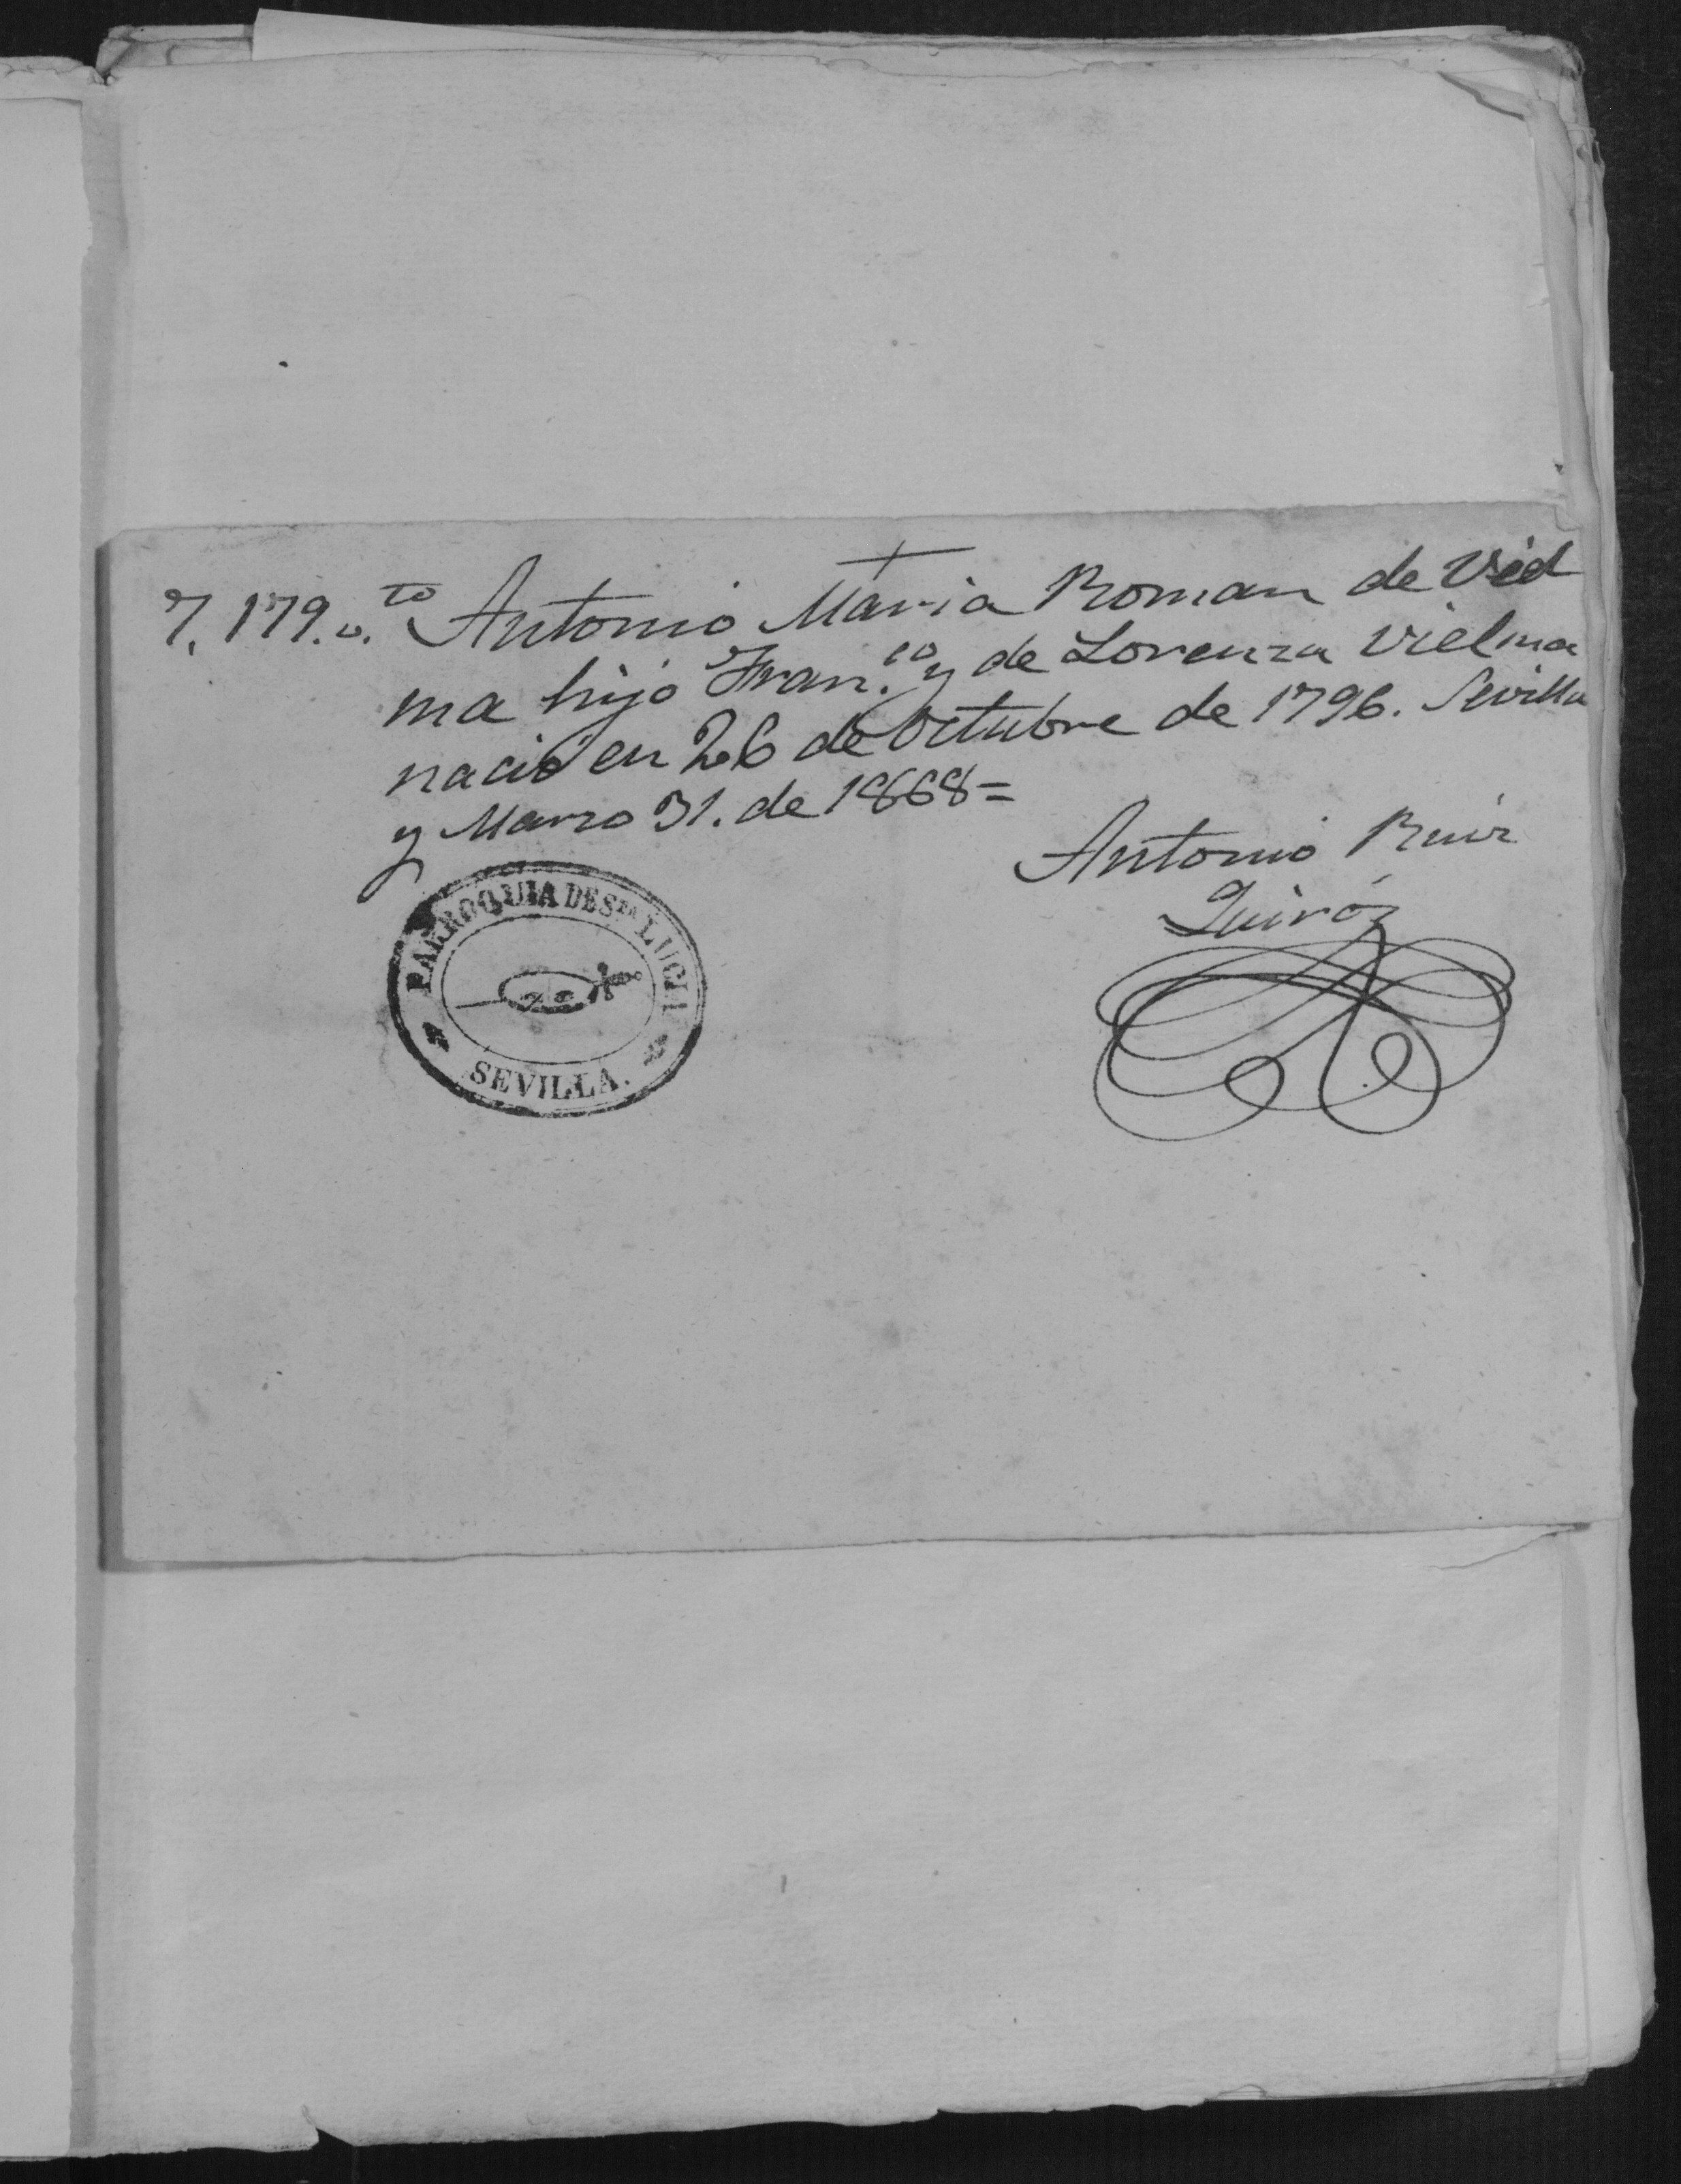 7. 179. v.to Antonio Maria Roman de Viel
ma hijo Fran.co y de Lorenza Vielma
nació en 26 de Octubre de 1796. Sevilla
y Marzo 31. de 1868=
Antonio Ruiz
Quiróz
PARROQUIA DE Sta LUCIA
SEVILLA.